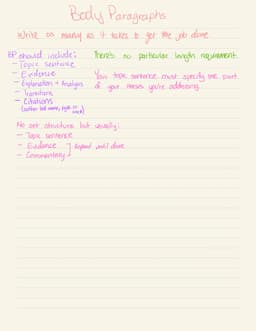 Body Paragraphs
Write as many as it takes to get the job done
BP should include:
- Topic sentence
- Evidence
- Explanation + Analysis
- Transitions
- Citations
(author last name, page
There's no particular length requirement.
Your topic sentence must specify the part
of your thesis you're addressing.
No set structure but usually:
- Topic sentence
- Evidence
- Commentary
Repeat until done